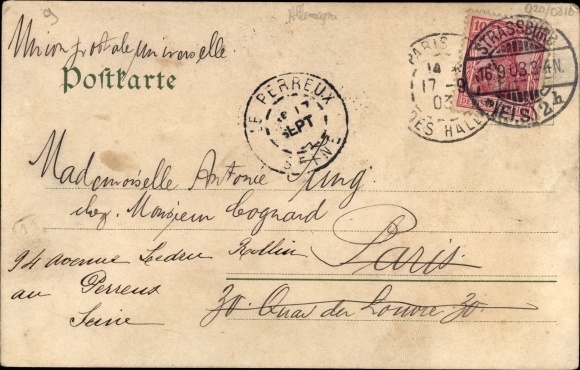 9
Allemagne
Union postale universelle.
Postkarte
LE PERREUX
17
SEPT
SEINE
PARIS
17 - 9
03
DES HALLES
10
STRASSBURG
16.9.03.3-4N.
(ELS) 2 h
Mademoiselle Antonie Jung.
chez. Monsieur Cognard
94 avenue Ledru Rollin Paris
au Perreux 30. Quai du Louvre 30.
Seine